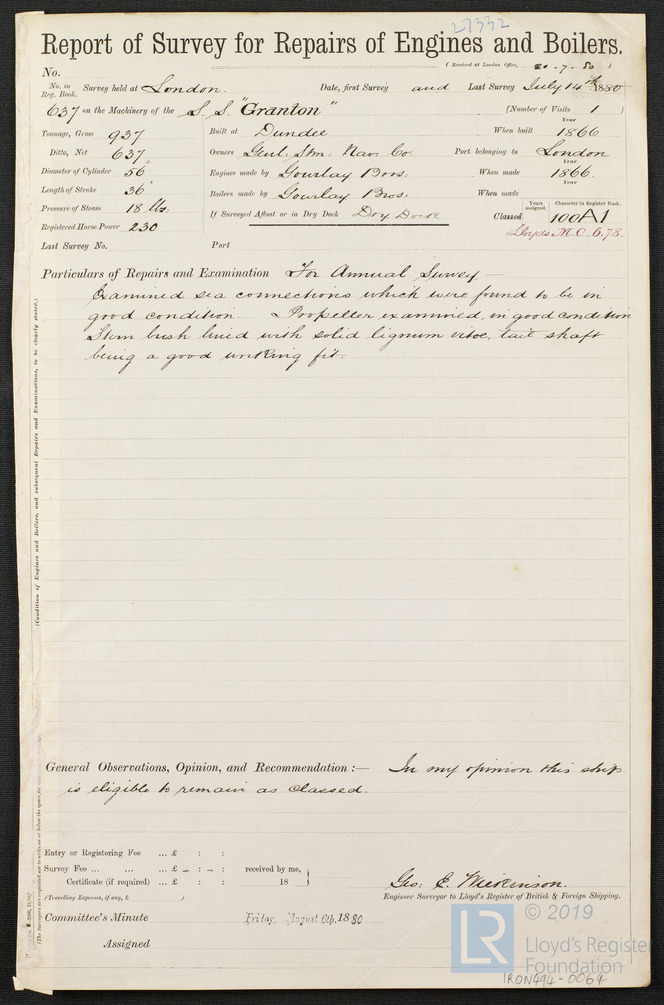 27332
Report of Survey for Repairs of Engines and Boilers.
(Received at London Office, 20.7.80)
No.
No. in Reg. Book. Survey held at London. Date, first Survey and Last Survey July 14th 1880
637 on the Machinery of the S.S. "Granton" (Number of Visits 1)
Tonnage, Gross 937 Built at Dundee When built Year 1866
Ditto, Net 637 Owners Genl. Stm. Nav. Co Port belonging to London
Diameter of Cylinder 56" Engines made by Gourlay Bros. When made Year 1866.
Length of Stroke 36" Boilers made by Gourlay Bros. When made Year
Pressure of Steam 18 lbs. If Surveyed Afloat or in Dry Dock Dry Dock Classed Years assigned Character in Register Book. 100A1
Registered Horse Power 230 Lloyds M.C. 6.78.
Last Survey No. Port
Particulars of Repairs and Examination For Annual Survey —
Examined sea connections which were found to be in
good condition. & Propeller examined, in good condition
Stern bush lined with solid lignum vitoe, tail shaft
being a good working fit.
(Condition of Engines and Boilers, and subsequent Repairs and Examinations, to be clearly stated.)
General Observations, Opinion, and Recommendation :— In my opinion this ship
is eligible to remain as classed.
Entry or Registering Fee ... £ : :
Survey Fee ... ... ... £ – : – : received by me,
Certificate (if required) ... £ : : 18
(Travelling Expenses, if any, £ )
Geo: E.
Engineer Surveyor to Lloyd's Register of British & Foreign Shipping.
Committee's Minute Friday, August 6th, 1880
Assigned
© 2019
LR
Lloyd's Register
Foundation
IRON494-0064